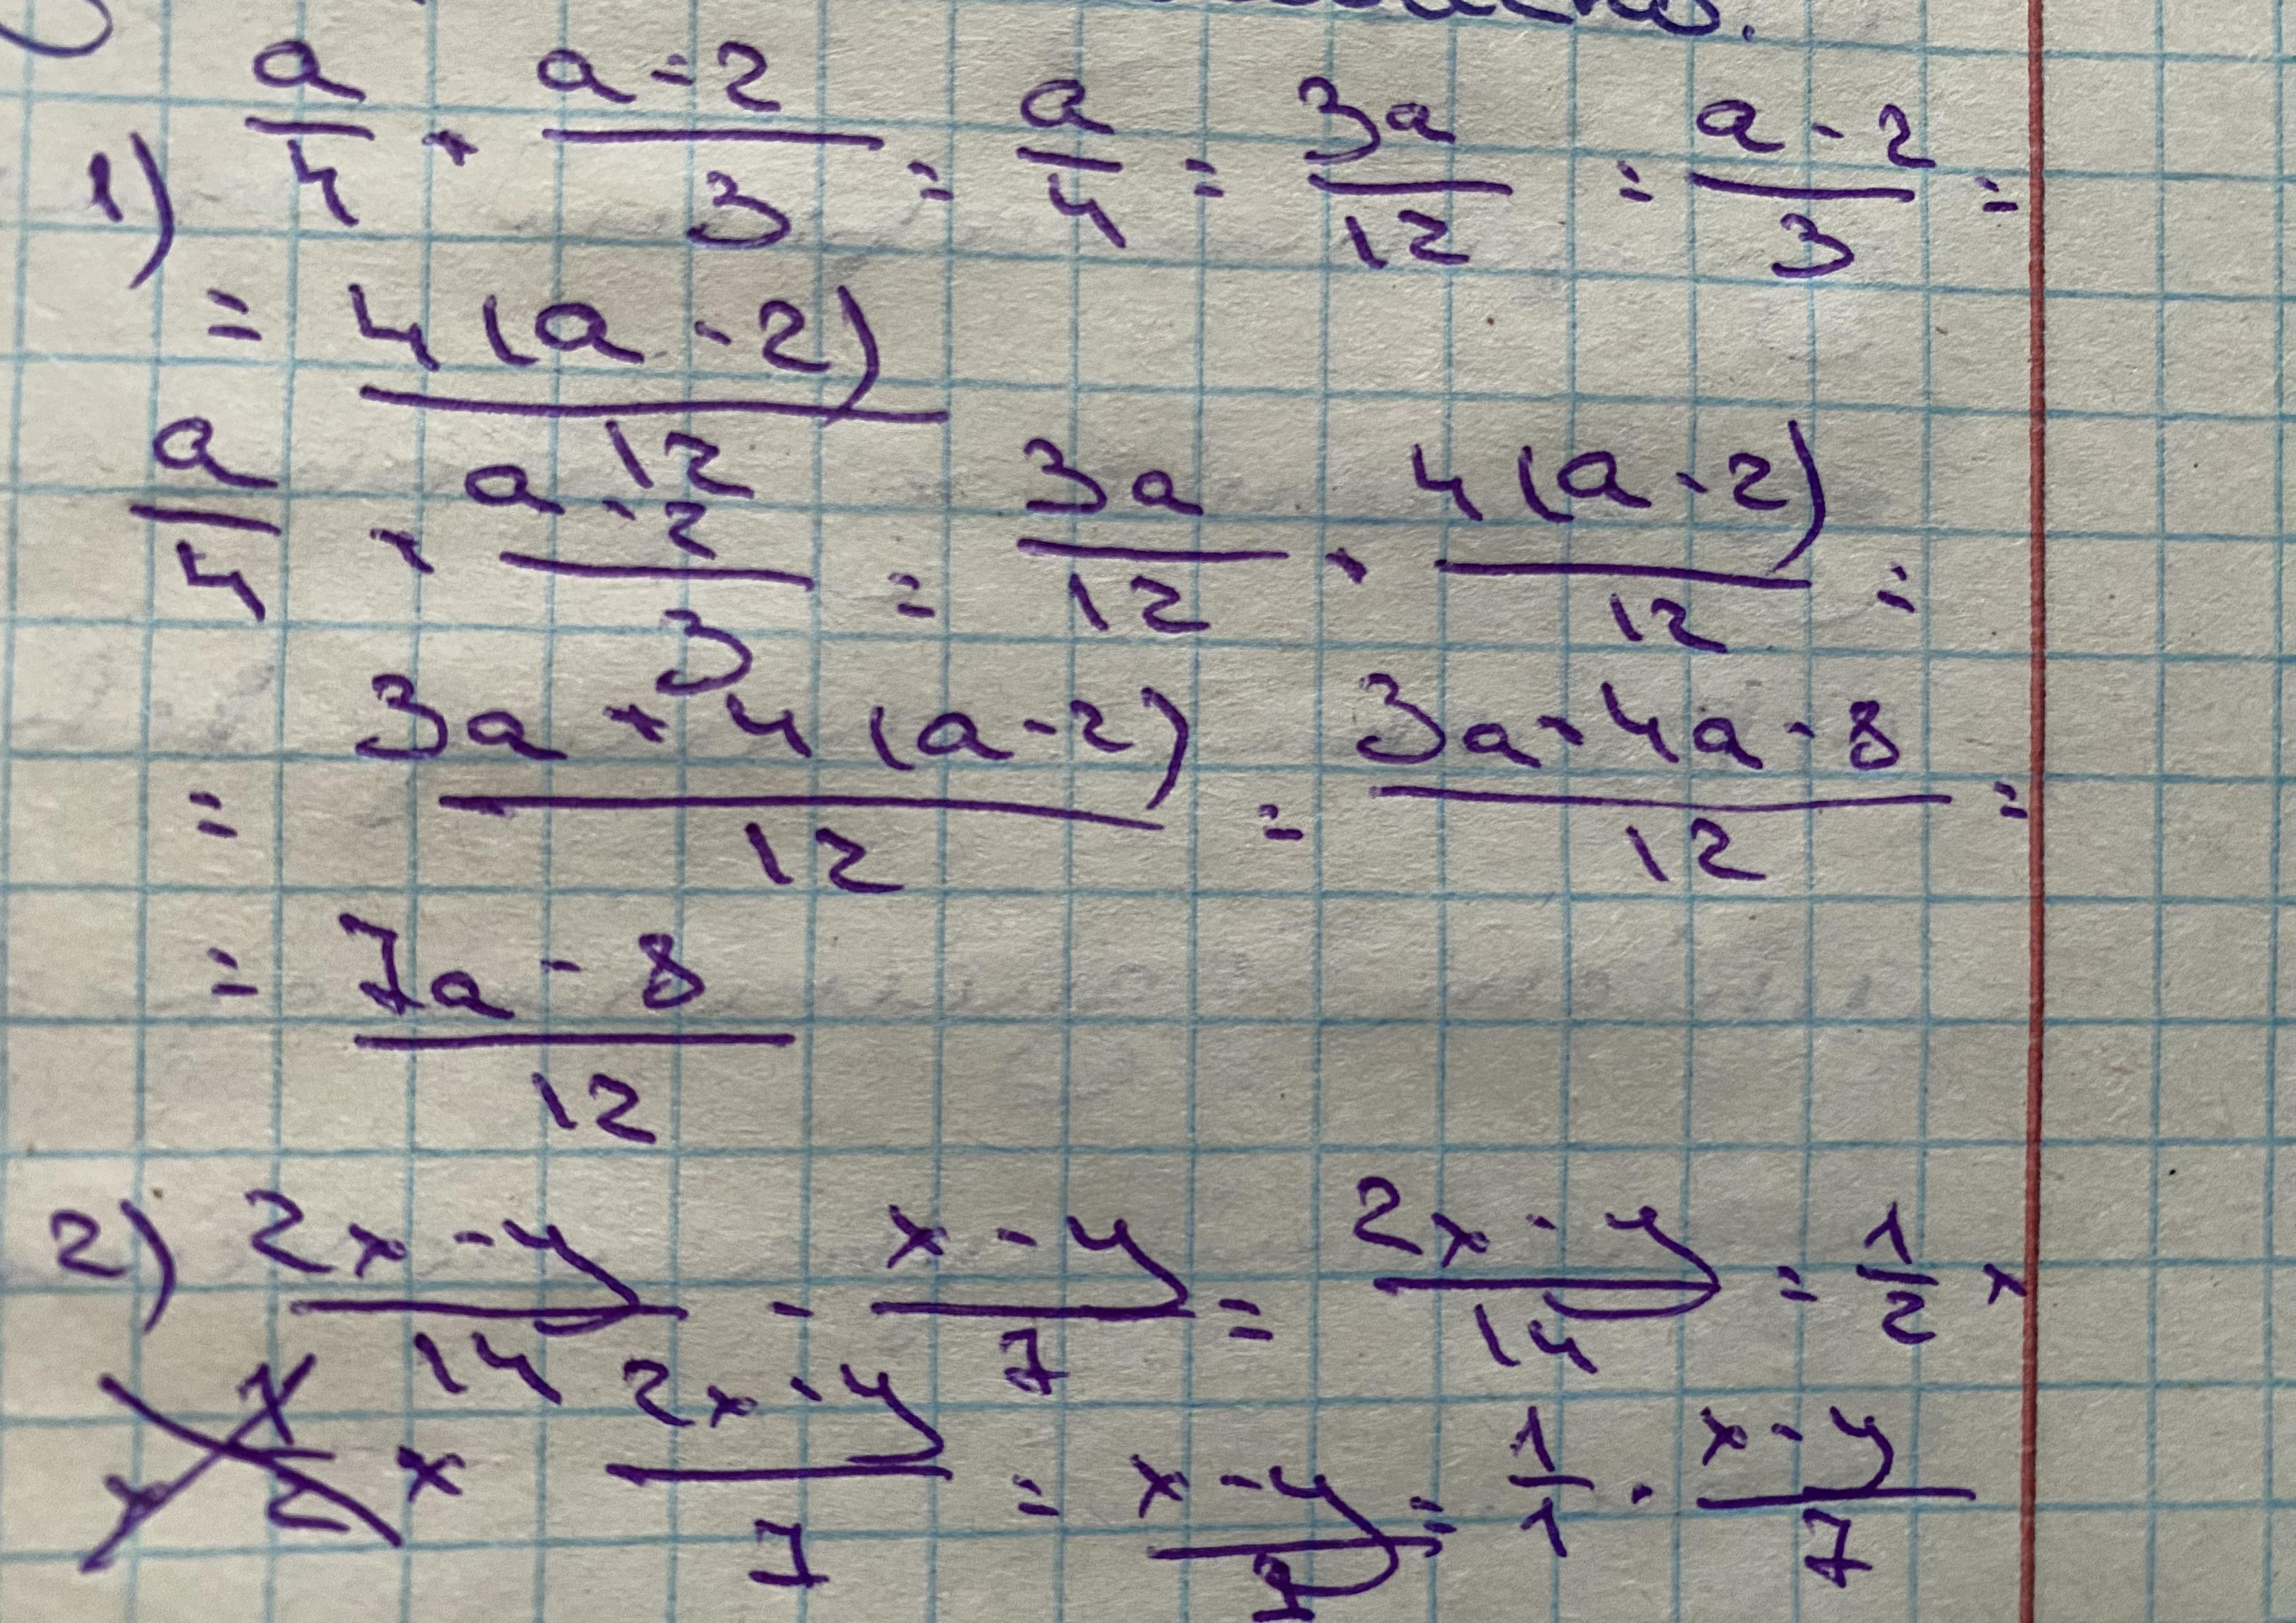 1) a/4 + a-2/3 = a/4 = 3a/12 = a-2/3 =
= 4(a-2)/12
a/4 + a-2/3 = 3a/12 + 4(a-2)/12 =
= 3a+4(a-2)/12 = 3a+4a-8/12 =
= 7a-8/12
2) 2x-y/14 - x-y/7 = 2x-y/14 = 1/2 ×
× 2x-y/7 = x-y/7 = 1/1 · x-y/7